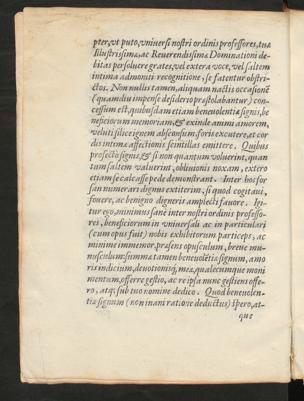 pter, vt puto, vniuersi nostri ordinis professores, tuæ
Illustrissimæ, ac Reuerendissimæ Dominationi de-
bitas persoluere grates, vel extera voce, vel saltem
intima admoniti recognitione, se fatentur obstri-
ctos. Non nullis tamen, aliquam nactis occasionē
(quam diu impense desiderio præstolabantur) con-
cessum est, quibusdam etiam beneuolentiæ signis, be
neficiorum memoriam, & exinde animi amorem,
veluti silice ignem absconsum, foris excutere, at cor
dis intimæ affectionis scintillas emittere. Quibus
profecto signis, & si non quantum voluerint, quan-
tum saltem valuerint, obliuionis noxam, extero
etiam se calcasse pede demonstrant. Inter hos for-
san numerari dignus extiterim, si quod cogitaui,
fouere, ac benigno digneris amplecti fauore. Igi-
tur ego, minimus sane inter nostri ordinis professo-
res, beneficiorum in vniuersali ac in particulari
(cum opus fuit) nobis exhibitorum particeps, ac
minime immemor, præsens opusculum, breue mu-
nusculum: summat amen beneuolētiæ signum, amo
ris indicium, deuotionisq́; meæ, qualecumque moni
mentum, offerre gestio, ac re ipsa nunc gestiens offe-
ro, atq́; sub tuo nomine dedico. Quod beneuolen-
tiæ signum (non inani ratione deductus) spero, at-
que